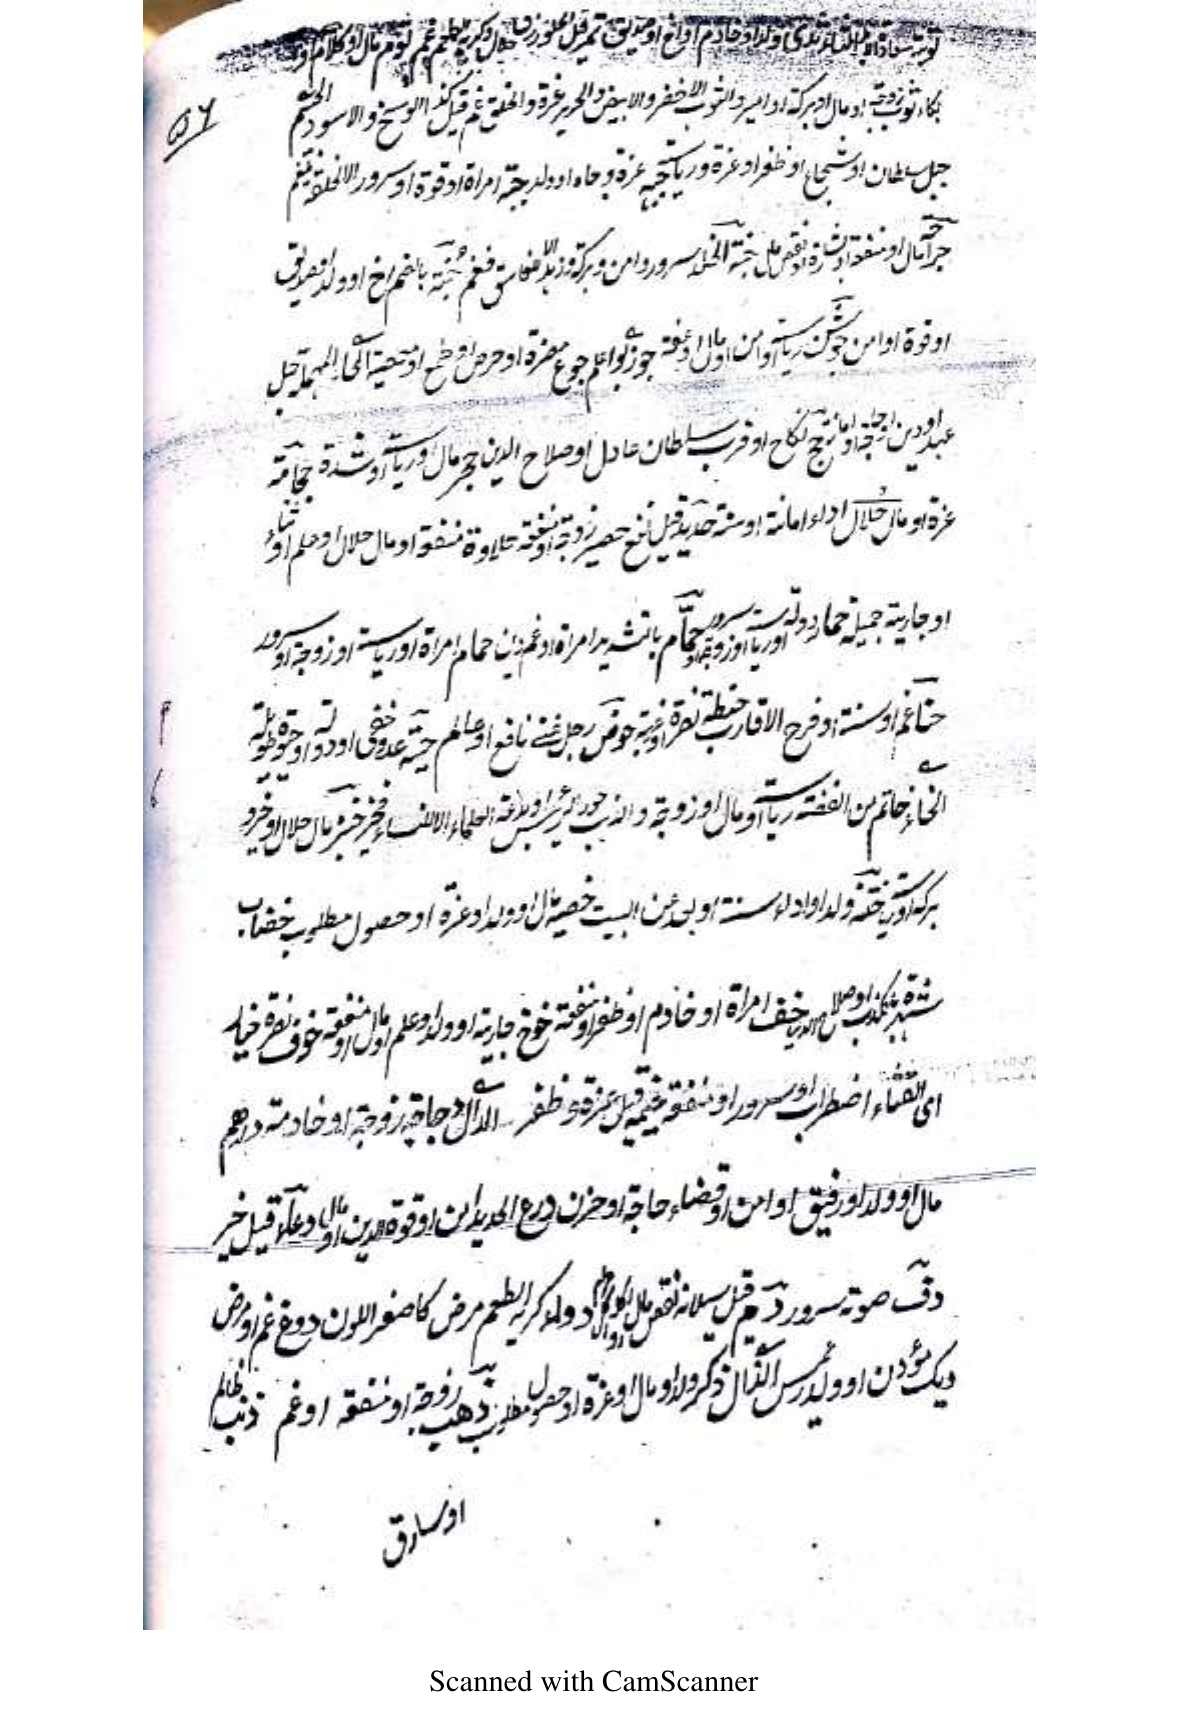 توبة سعادة الثاء ثدى ولد او خادم او اخ او صديق ثمر قيل الحلو رزق حلال وكريه الطعم غم ثوم مال او كلام او
۵۶
بكاء ثوب زوجة او مال او بركة او امير والثوب الاخضر والابيض والحرير عزة والخلق غم قيل كفر الوسخ والاسود غم الجيم
جبل سلطان او شجاع او ظفر او عزة ورياسة جبه عزة وجاه او ولد جبة امراة او قوة او سرور الا الخلقة فغم
جراحة مال او منفعة او نقص مال جنة الخلد سرور وامن وبركة وزهد الا لفاسق فغم جُبنة بالضم اخ او ولد او صديق
او قوة او امن جوشن رياسة او امن او مال او منفعة جوز بوا علم جوع مضرة او حرص او طمع او معصية الحاء المهملة حبل
عهد او دين او حاجة او امانة حج نكاح او قرب سلطان عادل او صلاح الدين حجر مال او رياسة او شدة حجامة
عزة او مال حلال اداء امانة او سنة حديد قيل نفع حصير زوجة او منفعة حلاوة منفعة او مال حلال او علم او ثناء
او جارية جميلة حمار دولة او رياسة او زوجة او سرور حمّام بالتشديد امراة او غم دين حمام امراة او رياسة او زوجة او سرور
حناء غم او سنة او فرح الاقارب حنطة نصرة او غربة حوض رجل غنى نافع او عالم حية عدو خفى او دولة او حيوة طويلة
الخاء خاتم من الفضة رياسة او مال او زوجة والذهب جور الرئيس او بلاغة العلماء الا للنساء فخير خبز مال حلال او خير و
بركة او رياسة ختنة ولد او اداء سنة او بعد عن البيت خصية مال او ولد او عزة او حصول مطلوب خضاب
شهرة بنكذب او صلاح الدنيا خف امراة او خادم او ظفر او منفعة خوخ جارية او ولد او علم او مال او منفعة خوف نصرة خيار
اى القثاء اضطراب او سرور او منفعة خيمة قيل عزة و ظفر الدال دجاجة زوجة او خادمة درهم
مال او ولد او رفيق او امن او قضاء حاجة او حزن درع الحديد امن او قوة الدين او مال دعاء قيل خير
دف صوته سرور دم قيل سيلانه نقص مال دواء كريه الطعم مرض كاصفر اللون دوغ غم او مرض
ديك مؤذن او ولد رئيس الذال ذكر ولد او مال او عزة او حصول مطلوب ذهب زوجة او منفعة او غم ذئب ظالم
او سارق
Scanned with CamScanner